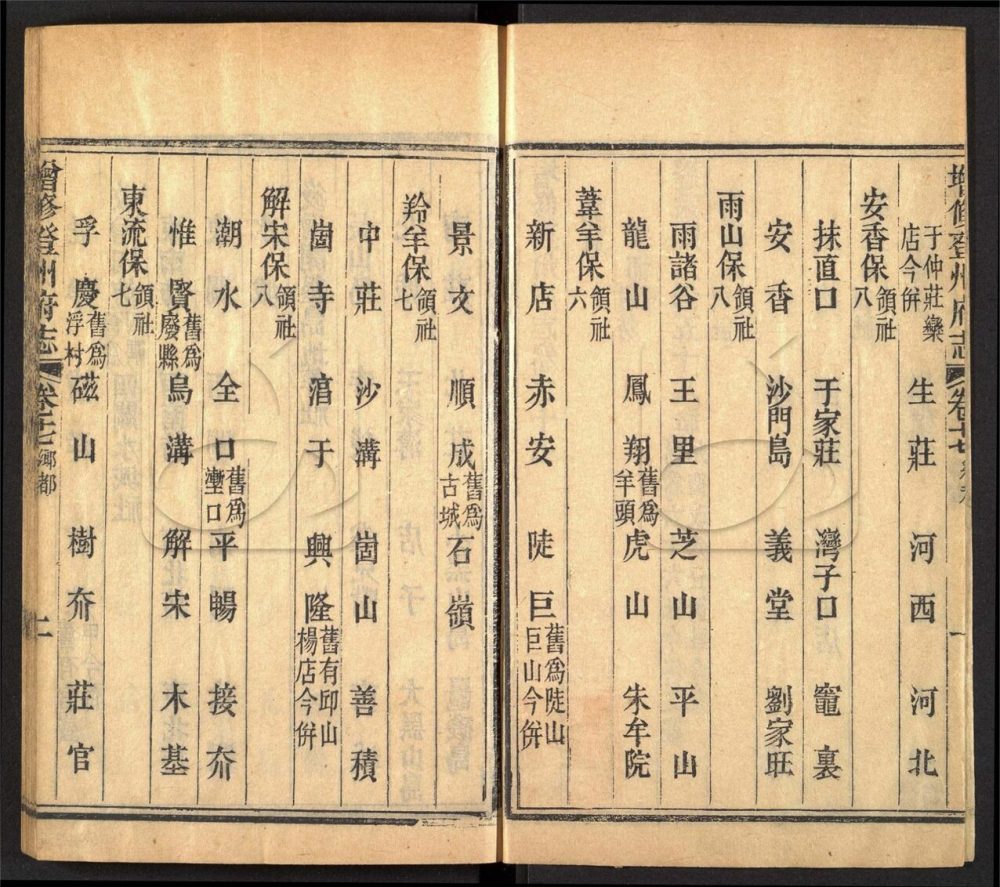 增修登州府志 卷十七 一
于仲莊欒店今併 生莊 河西 河北
安香保領社八
抹直口 于家莊 灣子口 竈裏
安香 沙門島 義堂 劉家旺
雨山保領社八
雨諸谷 王里 芝山 平山
龍山 鳳翔舊爲羊頭 虎山 朱牟院
葦羊保領社六
新店 赤安 陡巨舊爲陡山巨山今併
景文 順成舊爲古城 石嶺
羚羊保領社七
中莊 沙溝 崮山 善積
崮寺 涫于 興隆舊有邱山楊店今併
解宋保領社八
潮水 全口舊爲壍口 平暢 接夼
惟賢舊爲廢縣 烏溝 解宋 木基
東流保領社七
孚慶舊爲浮村 磁山 樹夼 莊官
增修登州府志 卷十七 鄉都 二